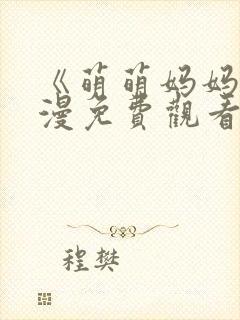 《萌萌妈妈
漫免費觀看
程樊